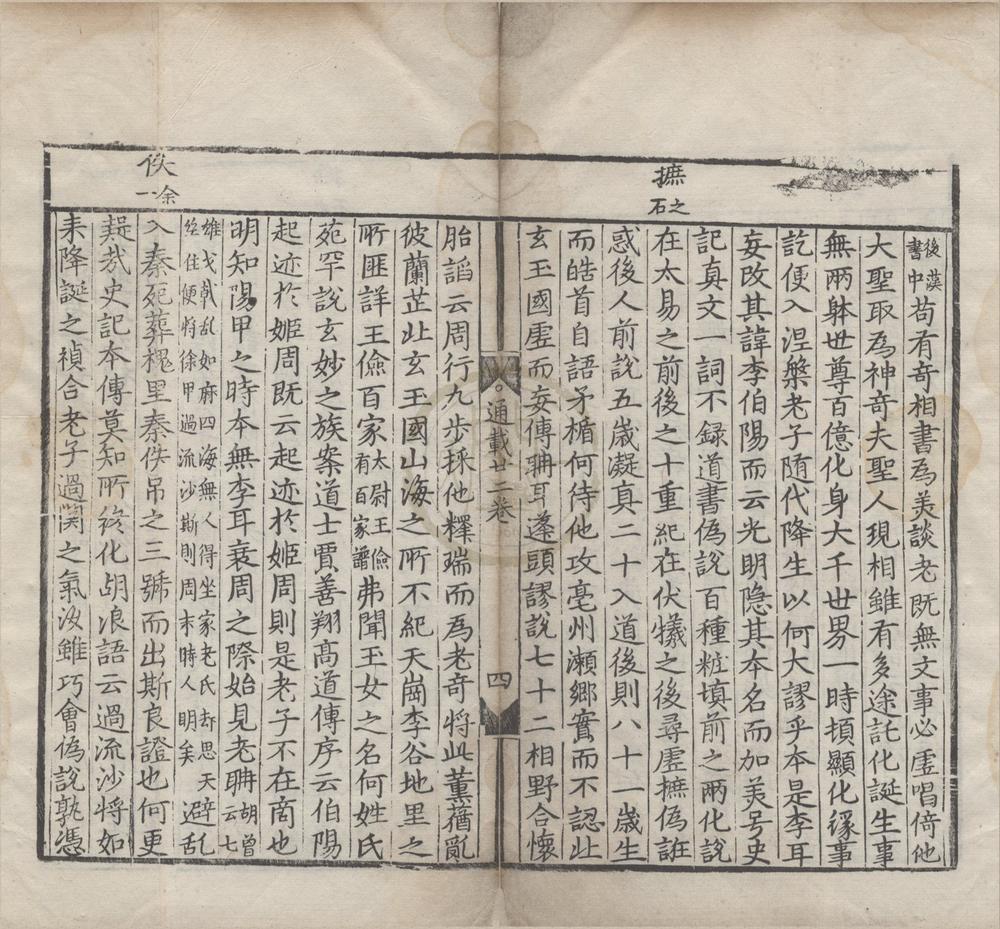 摭之石
後漢書中苟有奇相書為美談老既無文事必虛唱倚他
大聖取為神奇夫聖人現相雖有多途託化誕生事
無兩躰世尊百億化身大千世界一時頓顯化緣事
訖便入涅槃老子随代降生以何大謬乎本是李耳
妄改其諱李伯陽而云光明隐其本名而加美号史
記真文一詞不録道書偽說百種粧填前之兩化說
在太易之前後之十重紀在伏犧之後尋虛摭偽誑
惑後人前說五歲凝真二十入道後則八十一歲生
而皓首自語矛楯何待他攻亳州瀬鄉實而不認此
玄玉國虛而妄傳聃耳蓬頭謬說七十二相野合懷
通載廿二卷 四
佚余一
胎謟云周行九步採他釋瑞而為老奇將此薰蕕亂
彼蘭芷此玄玉國山海之所不紀天崗李谷地里之
所匪詳王儉百家太尉王儉有百家譜弗聞玉女之名何姓氏
苑罕說玄妙之族案道士賈善翔高道傳序云伯陽
起迹於姬周既云起迹於姬周則是老子不在商也
明知陽甲之時本無李耳衰周之際始見老聃胡曾云七
雄戈戟乱如麻四海無人得坐家老氏却思天竺住便將徐甲過流沙斯則周末時人明矣避乱
入秦死葬槐里秦佚吊之三號而出斯良證也何更
疑哉史記本傳莫知所終化胡浪語云過流沙將如
来降誕之禎合老子過関之氣汝雖巧會偽說孰憑